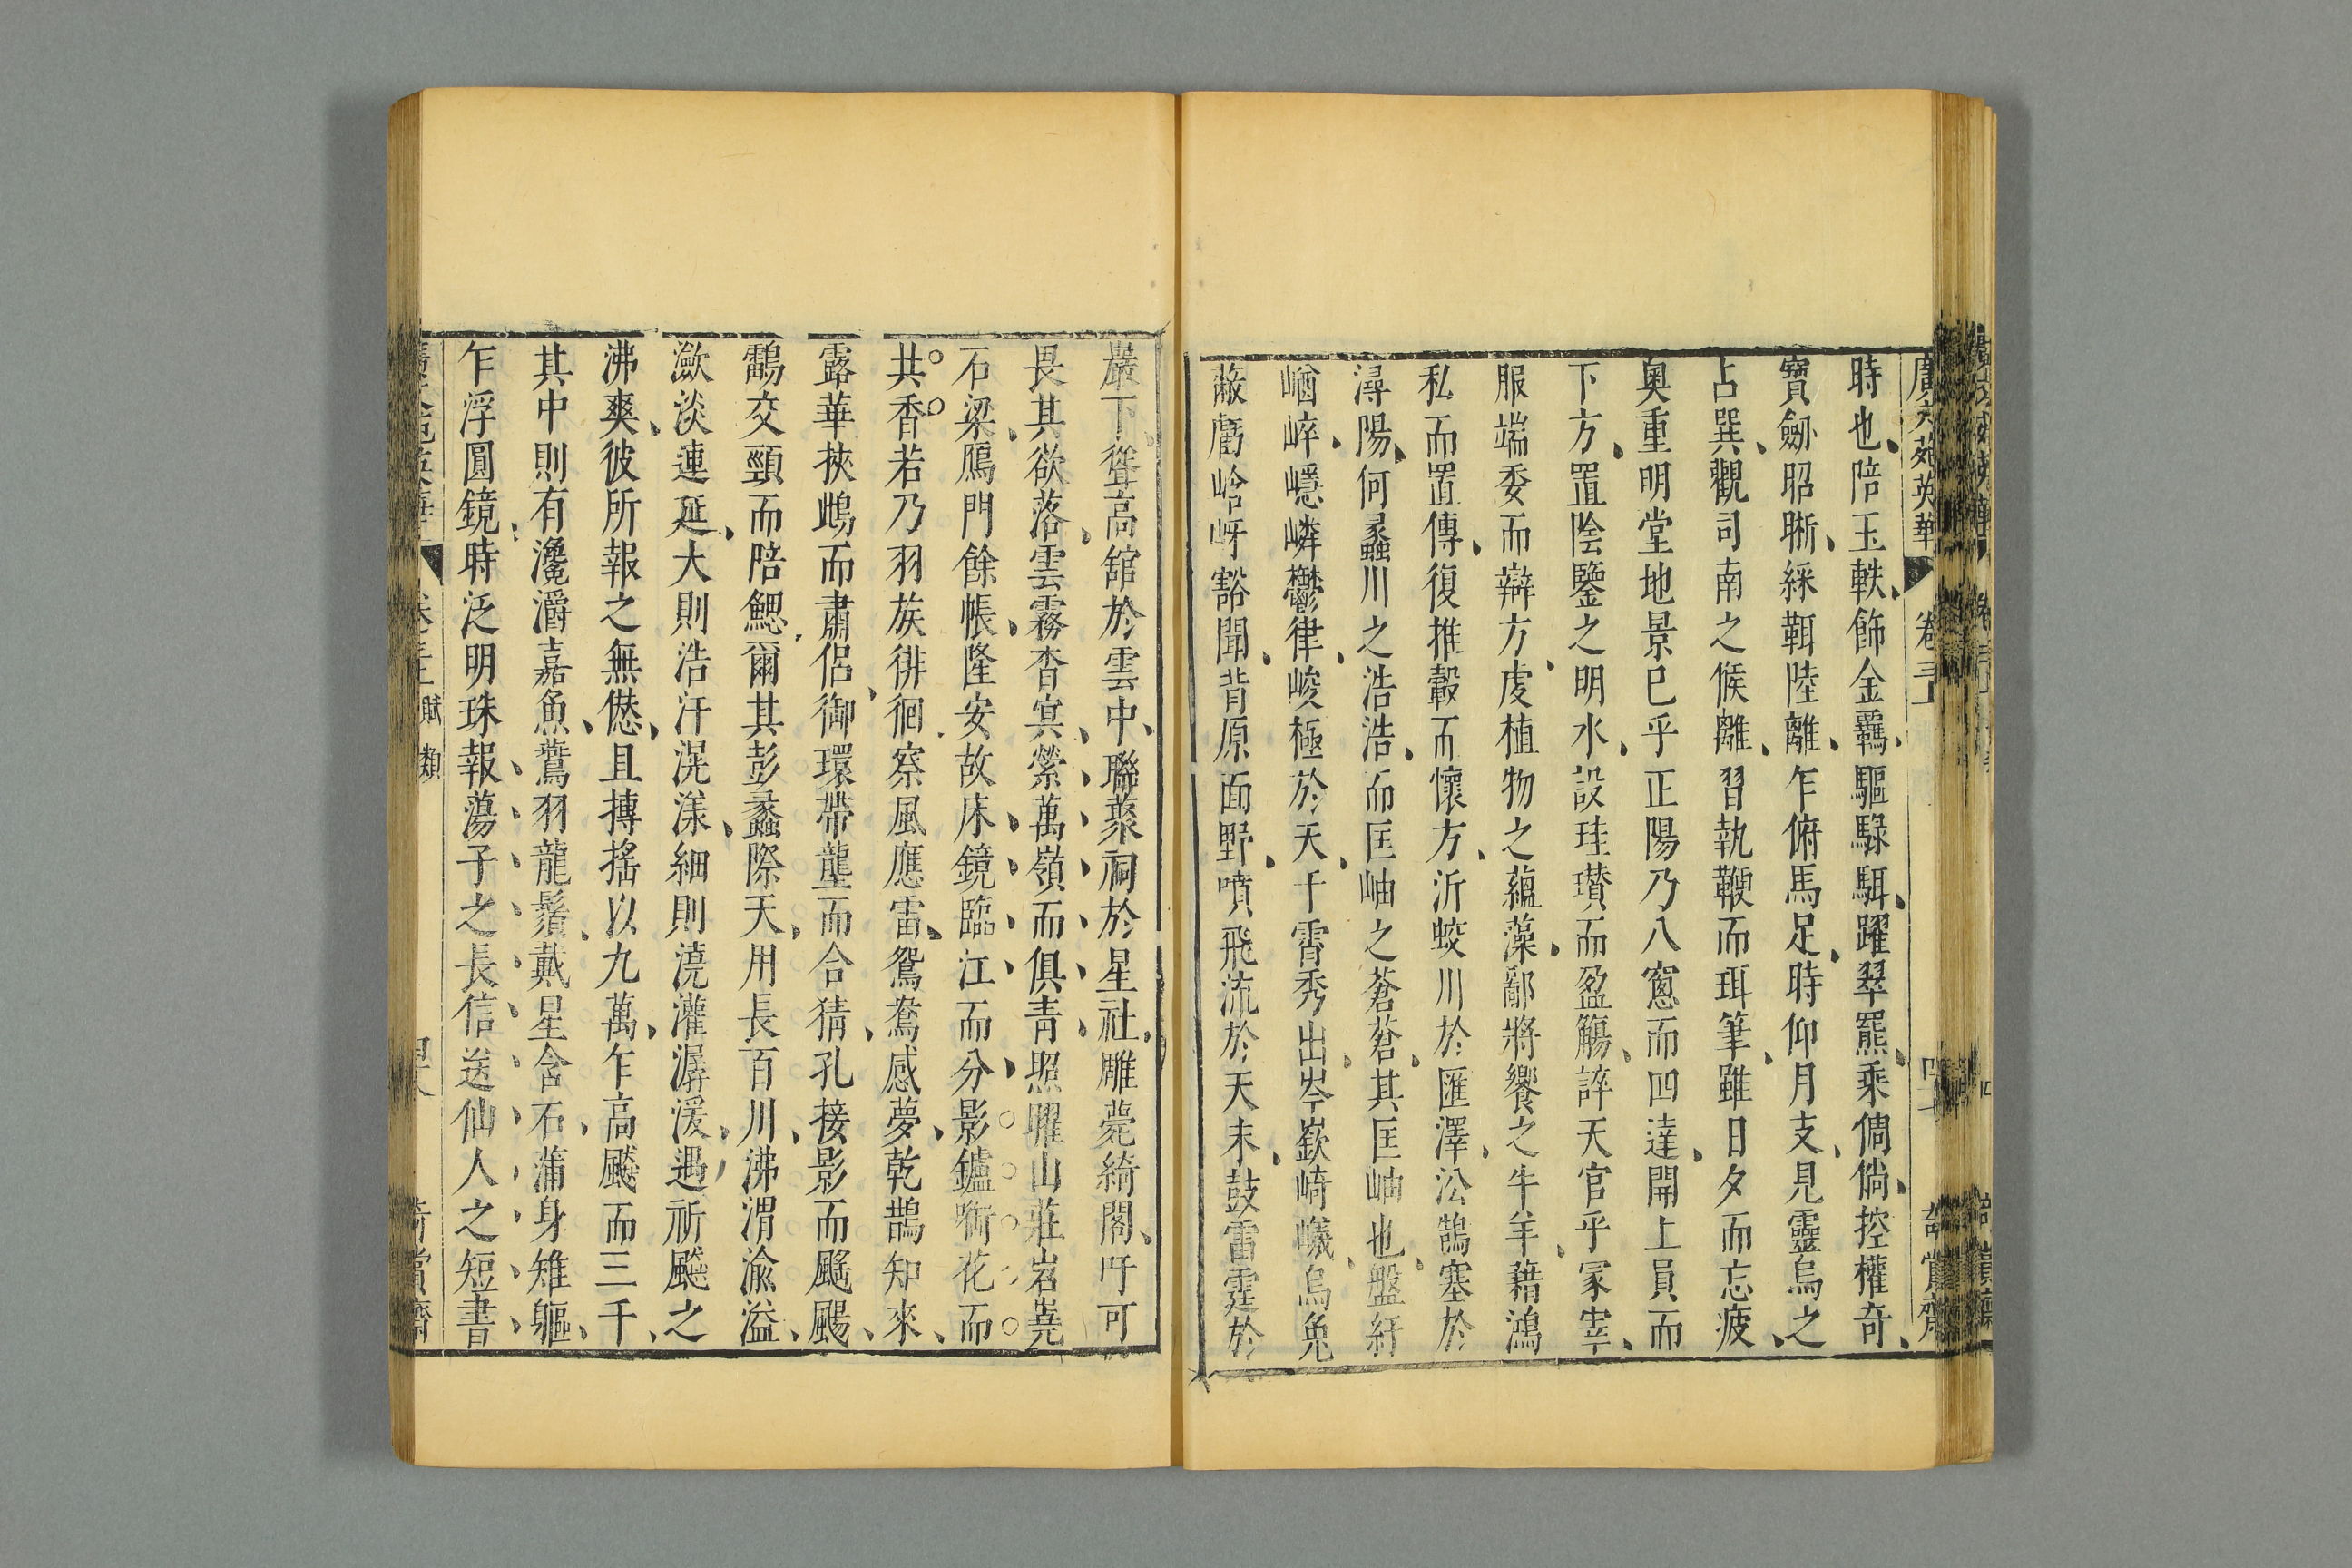 廣文苑英華 卷三 奇賞齋
時也陪玉軼飾金羈驅騄駬躍翠羆乘倜倘控權奇
寶劒昭晣綵鞙陸離乍俯馬足時仰月支見靈烏之
占巽觀司南之候離習執鞭而珥筆雖日夕而忘疲
奥重明堂地景巳乎正陽乃八窻而四達開上員而
下方置陰鑒之明水設珪瓚而盈觴誶天官乎冢宰
服端委而辯方虔植物之蘊藻鄙將饗之牛羊藉鴻
私而置傳復推轂而懷方沂蛟川於匯澤㳂鵠塞於
潯陽何彛川之浩浩而匡岫之蒼蒼其匡岫也盤紆
崷崪嶾嶙鬱律峻極於天千霄秀出岑嶔崎嶬烏兔
蔽虧峆岈豁閜背原面野噴飛流於天末鼓雷霆於
巖下聳高舘於雲中聯藂祠於星社雕甍綺閣吁可
畏其欲落雲霧杳㝠縈萬嶺而俱青照曜山莊岧嶤
石梁鴈門餘帳隆安故床鏡臨江而分影鑪銜花而
共香若乃羽族徘徊察風應雷鴛鴦感夢乾鵲知來
露華挾鴟而肅侶御環帶壟而合猜孔接影而颺颺
鷊交頸而陪鰓爾其彭蠡際天用長百川沸渭渝溢
潋淡連延大則浩汗滉漾細則澆灌潺湲遇祈飈之
沸爽彼所報之無僽且摶搖以九萬乍高飈而三千
其中則有瀺灂嘉魚鷟羽龍鬚戴星含石蒲身雉軀
乍浮圓鏡時泛明珠報蕩子之長信送仙人之短書
卷三 賦類 四六 奇賞齋